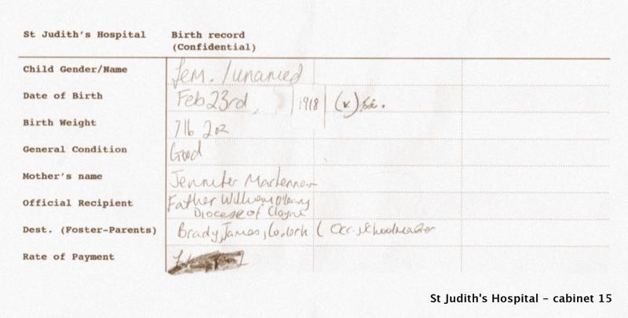 St Judith's Hospital Birth record
(Confidential)
Child Gender/Name fem. /unamed
Date of Birth Feb 23rd, 1918 (v)
Birth Weight 7lb 2oz
General Condition Good
Mother's name Jennifer
Official Recipient Father William
Diocese of Cloyne
Dest. (Foster-Parents) Brady, James, Co. Cork ( Occ. schoolmaster
Rate of Payment
St Judith's Hospital – cabinet 15